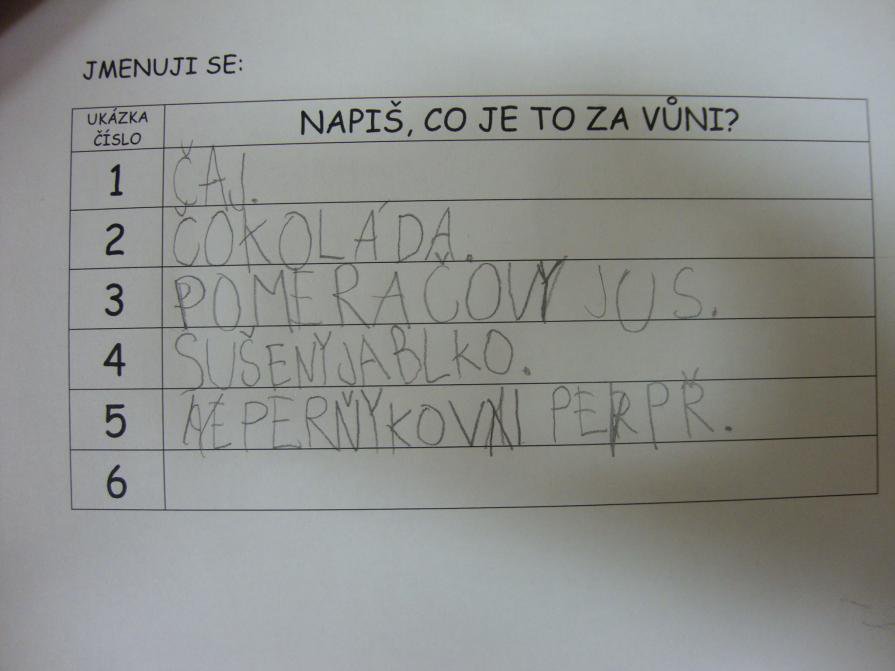 JMENUJI SE:
UKÁZKA ČÍSLO
NAPIŠ, CO JE TO ZA VŮNI?
1 ČAJ.
2 ČOKOLÁDA.
3 POMERAČOVY JUS.
4 SUŠENYJABLKO.
5 PERPŘ.
6